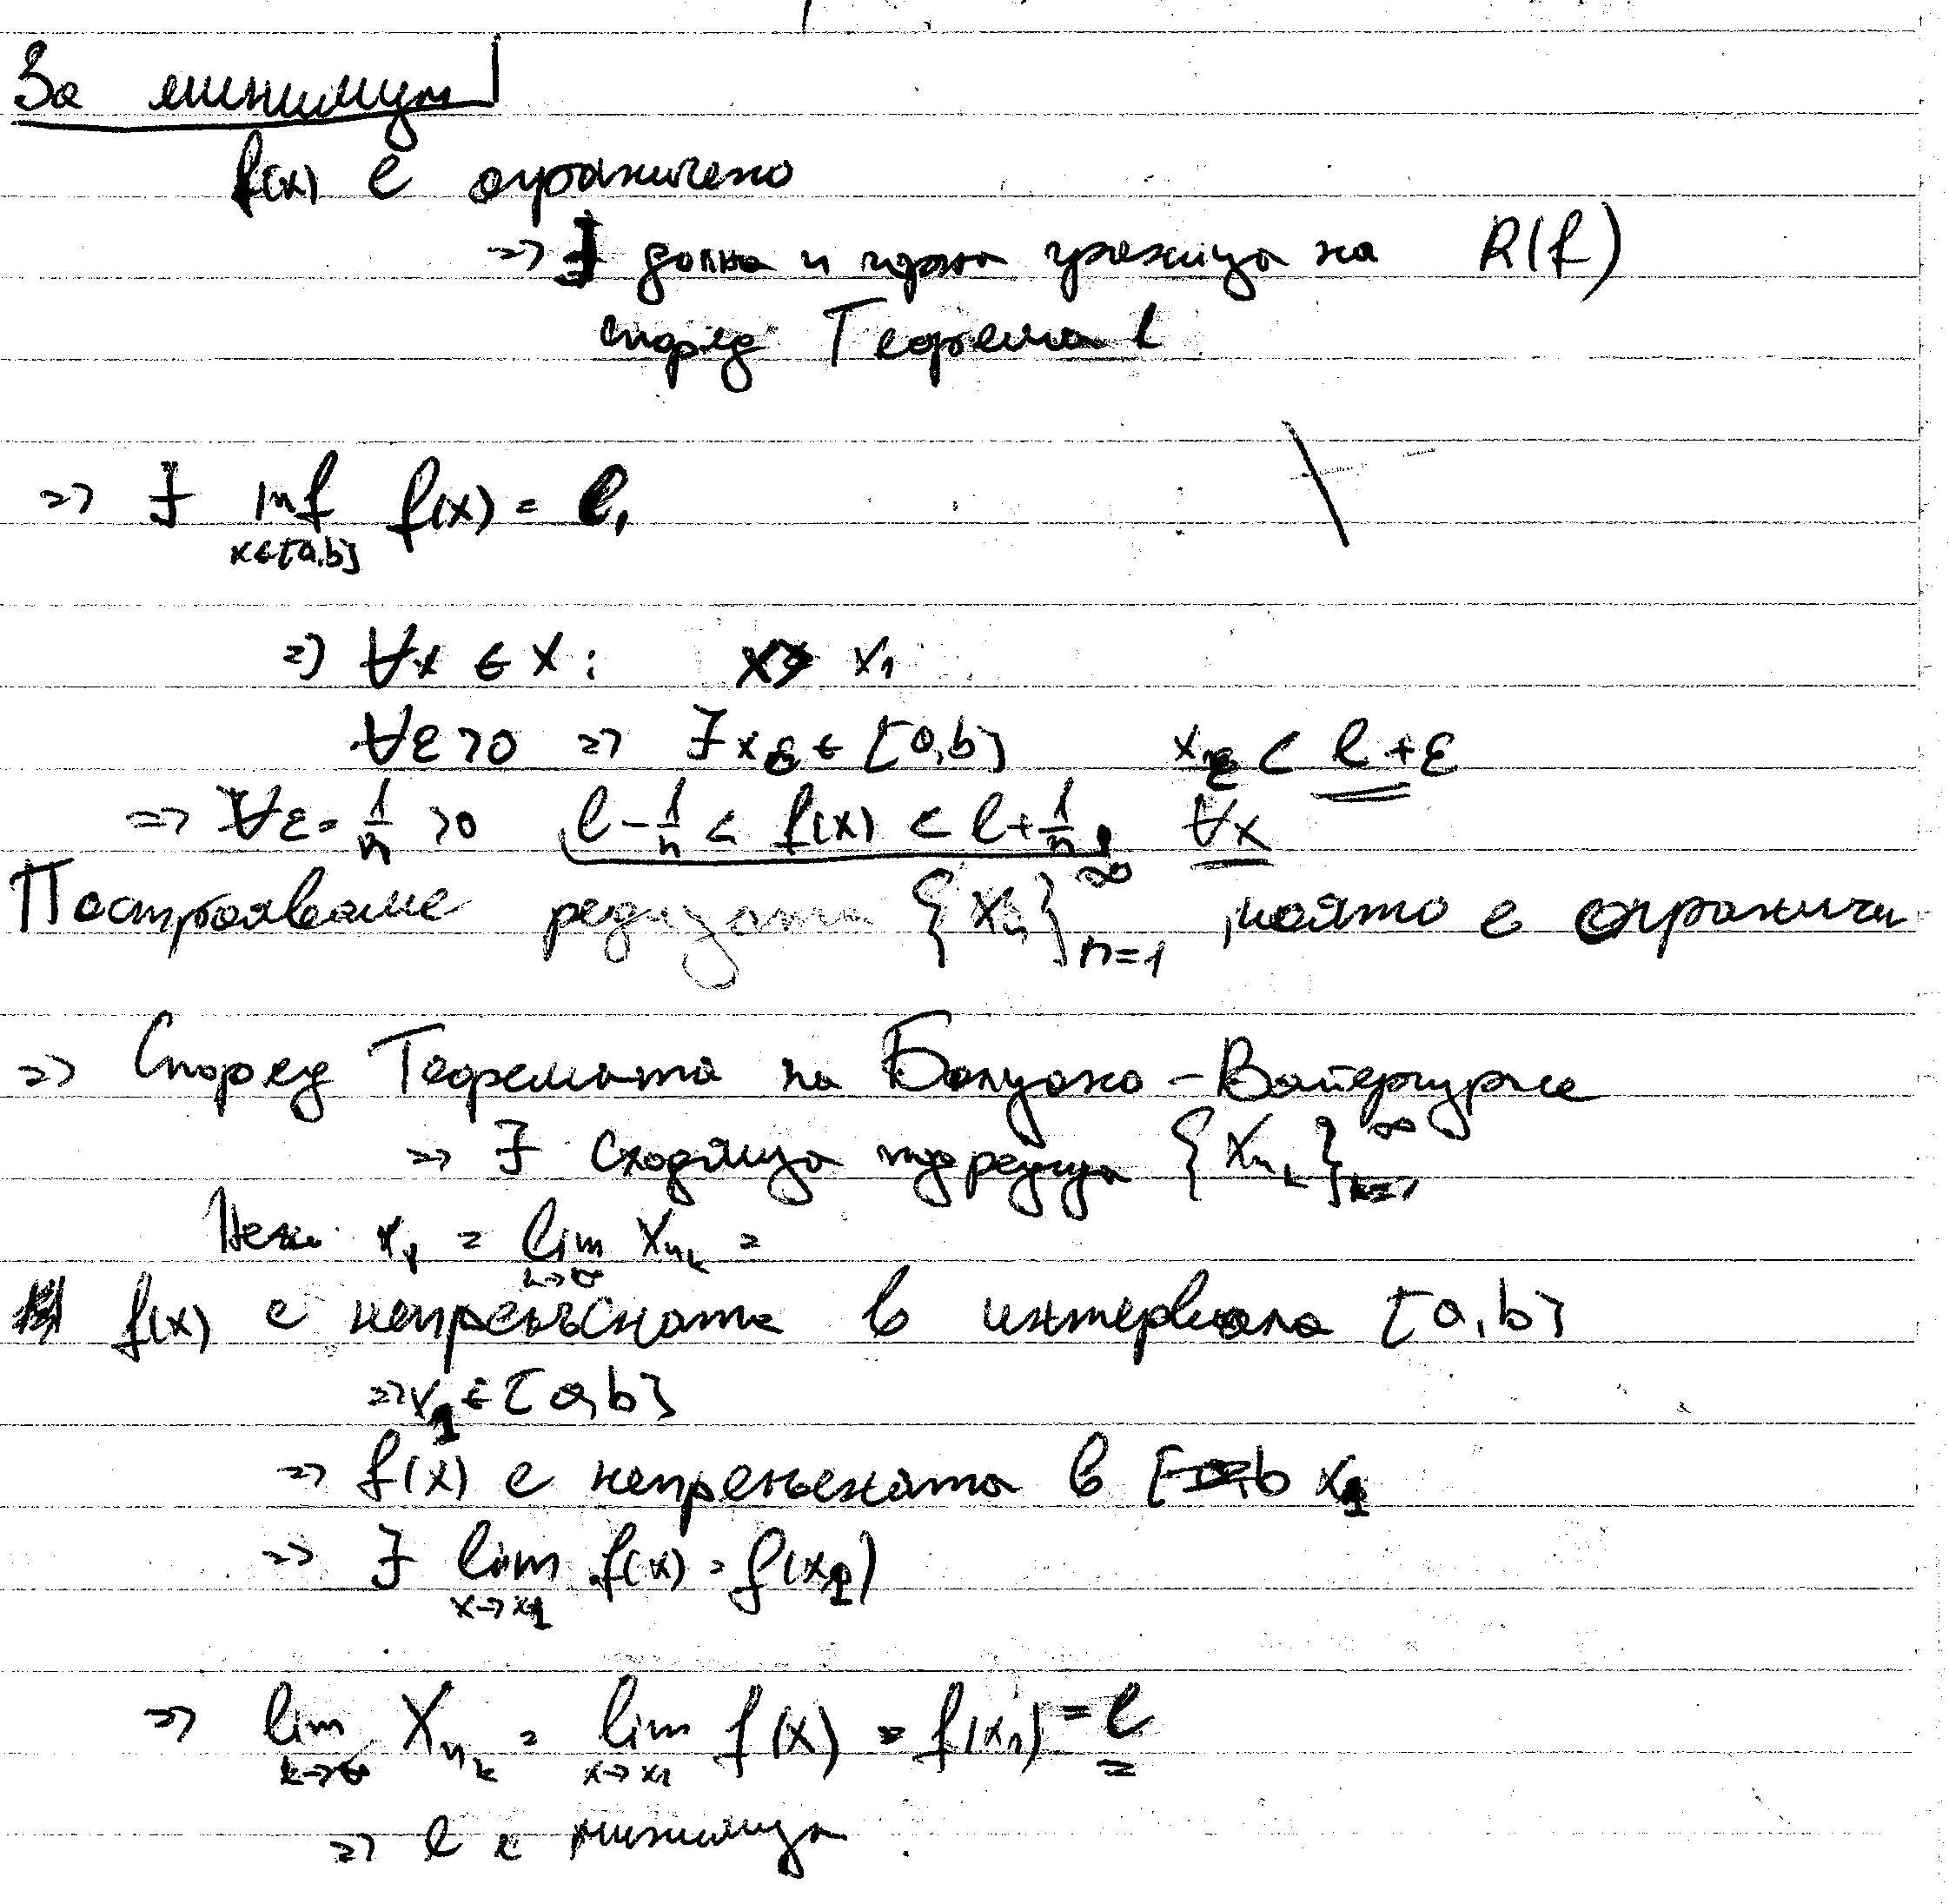 За минимум
f(x) е ограничено
=> ∃ долна и горна граница на R(f)
според Теорема 1
=> ∃ inf f(x) = l,
x∈[a,b]
=> ∀x ∈ X: x> x₁
∀ε>0 => ∃xε ∈ [a,b] xε < l+ε
=> ∀ε = 1/n >0 l - 1/n < f(x) < l + 1/n, ∀x
Построяваме редицата {xₙ}∞ n=1, която е ограничен
=> Според Теоремата на Болцано - Вайерщрас
=> ∃ сходяща подредица {xₙₖ}∞ k=1
Нека x₁ = lim xₙₖ =
k→∞
f(x) е непрекъсната в интервала [a,b]
=> x₁ ∈ [a,b]
=> f(x) е непрекъсната в x₁
=> ∃ lim f(x) = f(x₁)
x→x₁
=> lim xₙₖ = lim f(x) = f(x₁) = l
k→∞ x→x₁
=> l е